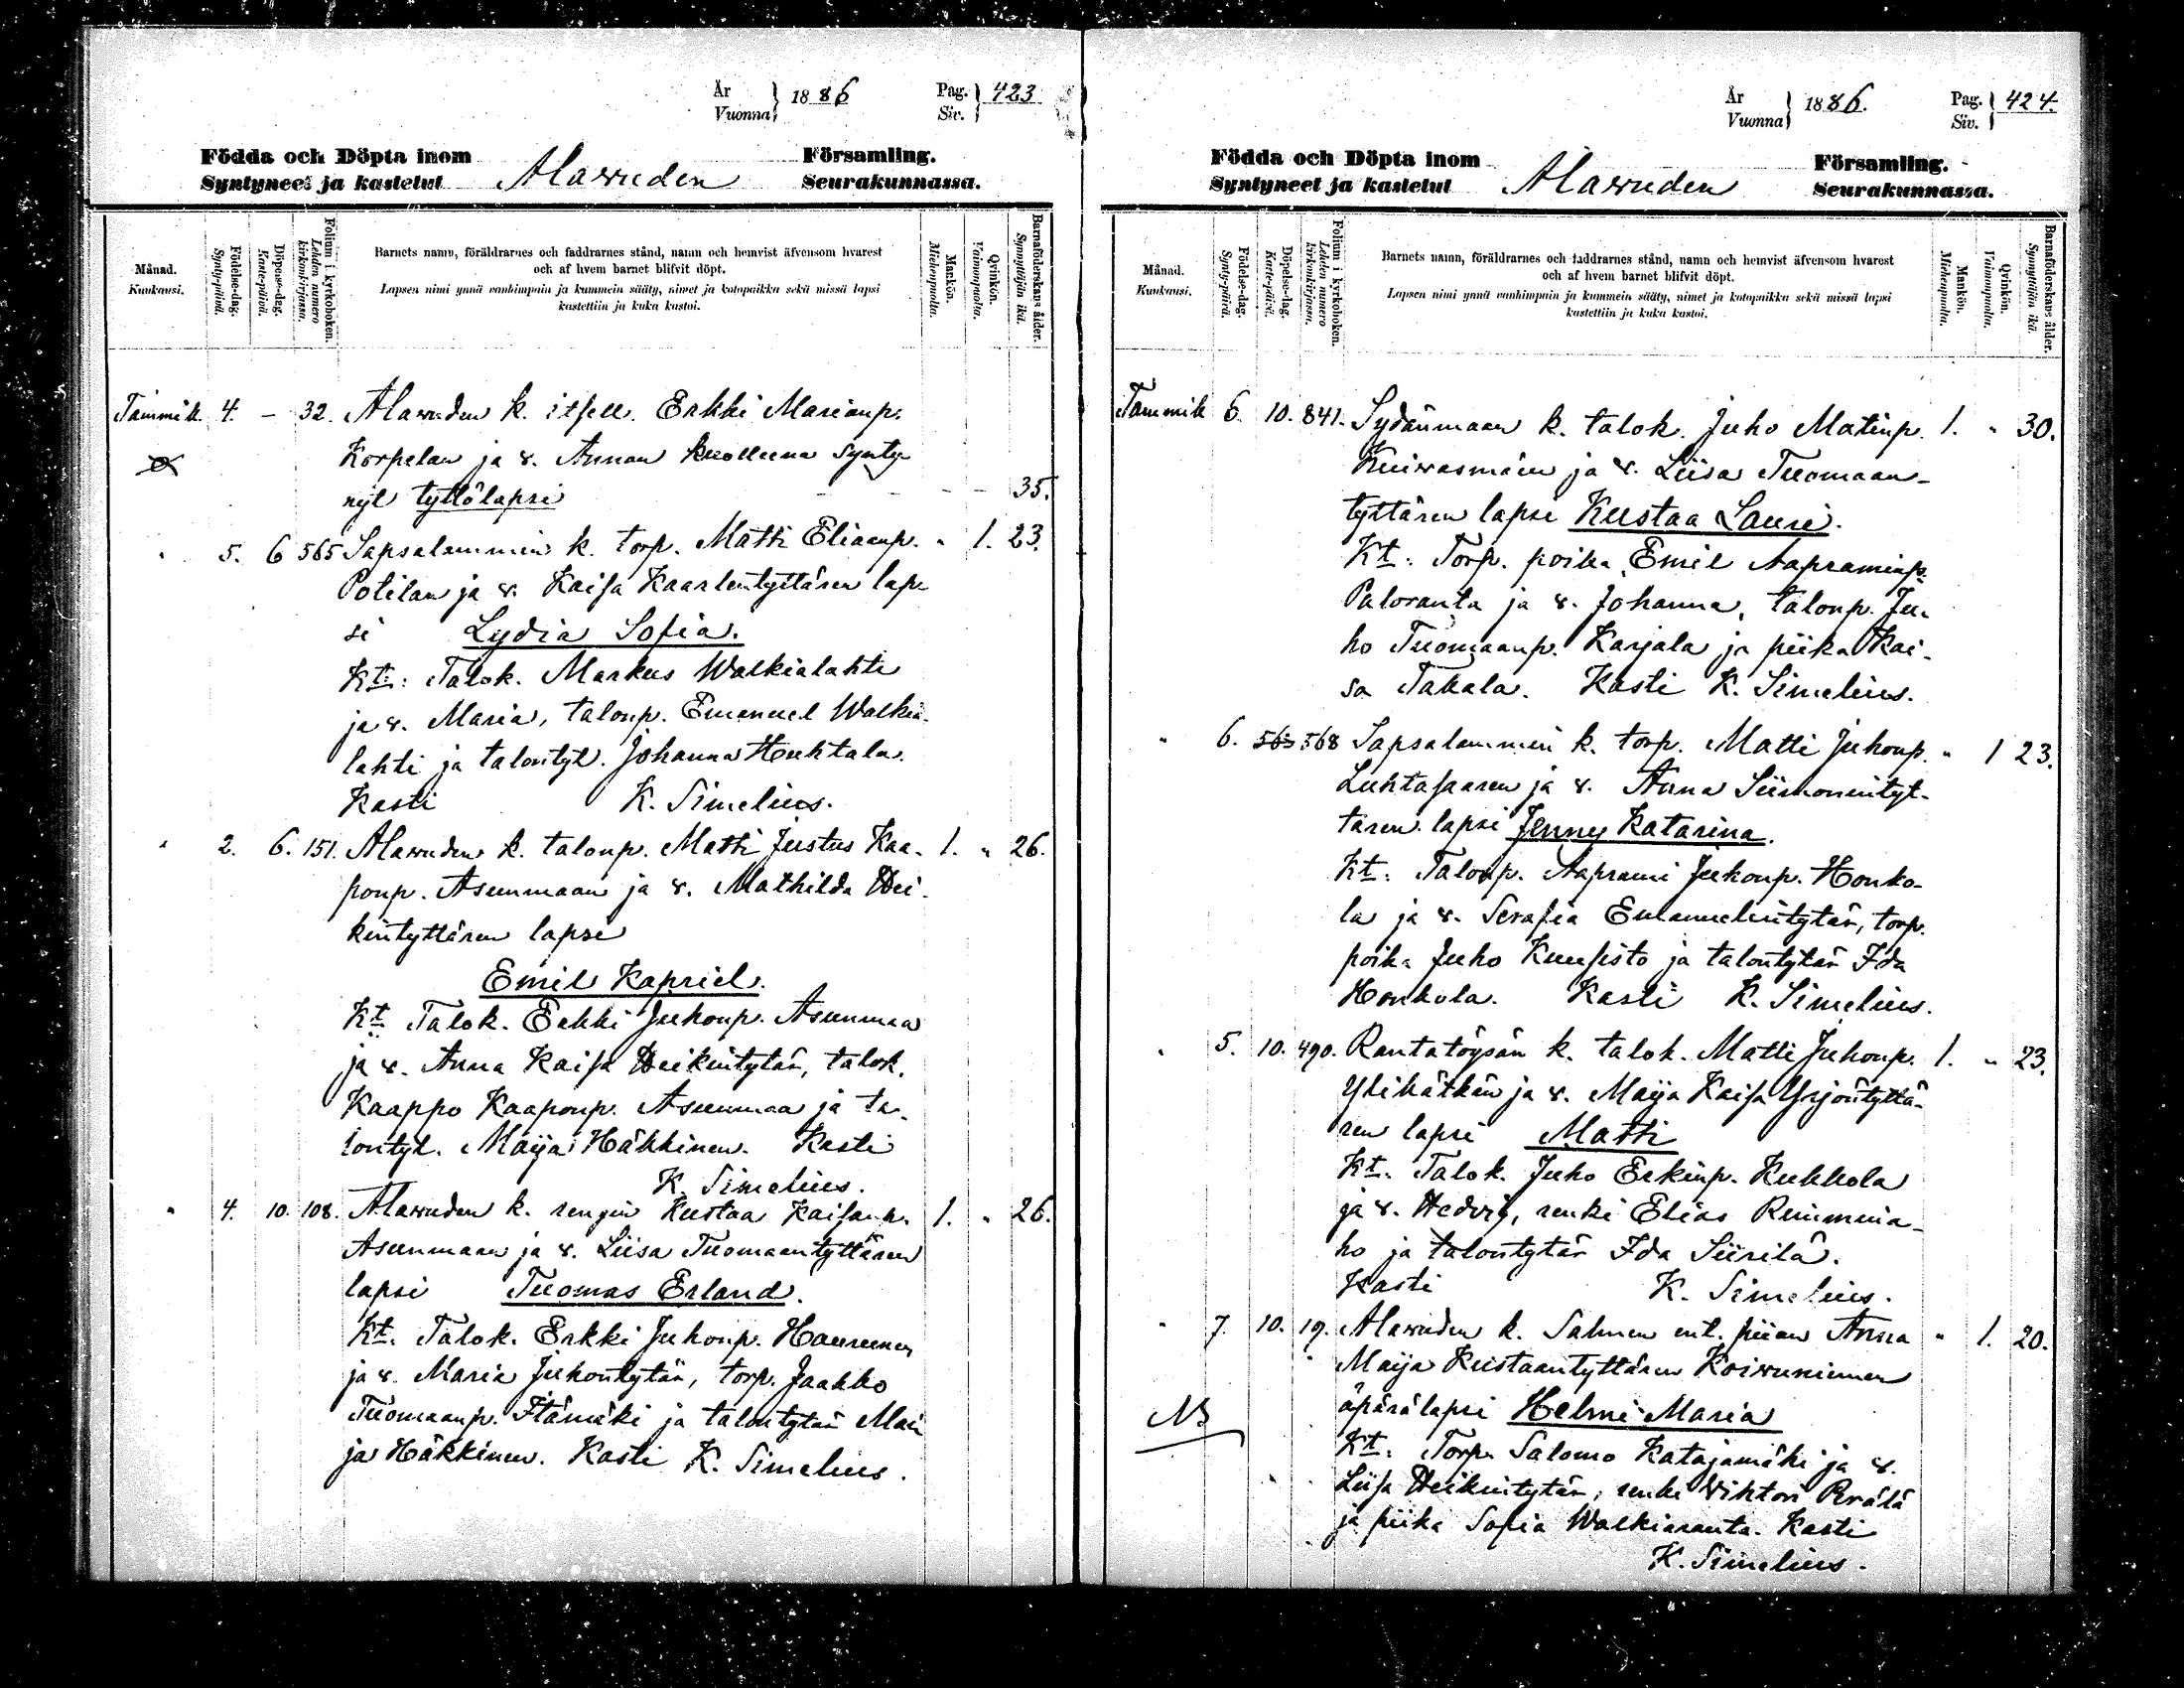 År
Vuonna } 1886
Pag.
Siv. } 423
Födda och Döpta inom
Syntyneet ja kastetut
Alavuden
Församling.
Seurakunnassa.
Månad.
Kuukausi.
Födelse-dag.
Synty-päivä.
Döpelse-dag.
Kaste-päivä.
Folium i kyrkoboken.
Lehden numero
kirkonkirjassa.
Barnets namn, föräldrarnes och faddrarnes stånd, namn och hemvist äfvensom hvarest
och af hvem barnet blifvit döpt.
Lapsen nimi ynnä vanhimpain ja kummein sääty, nimet ja kotopaikka sekä missä lapsi
kastettiin ja kuka kastoi.
Mankön.
Miehenpuolta.
Qvinkön.
Vaimonpuolta.
Barnaföderskans ålder.
Synnyttäjän ikä.
Tammik. 4. - 32. Alavuden k. itsell. Erkki Marianp.
Korpelan ja v. Annan kuolleena synty-
nyt tyttölapsi - - - 35.
" 5. 6 565 Sapsalammin k. torp. Matti Eliaanp. " 1. 23.
Potilan ja v. Kaisa Kaarlentyttären lap-
si Lydia Sofia.
Kt: Talok. Markus Walkialahti
ja v. Maria, talonp. Emanuel Walkia-
lahti ja talontyt. Johanna Huhtala.
Kasti K. Simelius.
" 2. 6. 151. Alavuden k. talonp. Matti Justus Kaa- 1. " 26.
ponp. Asunmaan ja v. Mathilda Hei-
kintyttären lapsi
Emil Kapriel.
Kt: Talok. Erkki Juhonp. Asunmaa
ja v. Anna Kaisa Heikintytär, talok.
Kaappo Kaaponp. Asunmaa ja ta-
lontyt. Maija Häkkinen. Kasti
K. Simelius.
" 4. 10. 108. Alavuden k. rengin Kustaa Kaisanp. 1. " 26.
Asunmaan ja v. Liisa Tuomaantyttären
lapsi Tuomas Erland.
Kt. Talok. Erkki Juhonp. Haurunen
ja v. Maria Juhontytär, torp. Jaakko
Tuomaanp. Itämäki ja talontytär Mai
ja Häkkinen. Kasti K. Simelius.
År
Vuonna } 1886.
Pag.
Siv. } 424.
Födda och Döpta inom
Syntyneet ja kastetut
Alavuden
Församling.
Seurakunnassa.
Månad.
Kuukausi.
Födelse-dag.
Synty-päivä.
Döpelse-dag.
Kaste-päivä.
Folium i kyrkoboken.
Lehden numero
kirkonkirjassa.
Barnets namn, föräldrarnes och faddrarnes stånd, namn och hemvist äfvensom hvarest
och af hvem barnet blifvit döpt.
Lapsen nimi ynnä vanhimpain ja kummein sääty, nimet ja kotopaikka sekä missä lapsi
kastettiin ja kuka kastoi.
Mankön.
Miehenpuolta.
Qvinkön.
Vaimonpuolta.
Barnaföderskans ålder.
Synnyttäjän ikä.
Tammik 6. 10. 841. Sydänmaan k. talok. Juho Matinp. 1. " 30.
Kuivasmäen ja v. Liisa Tuomaan-
tyttären lapsi Kustaa Lauri.
Kt: Torp. poika Emil Aapraminp.
Paloranta ja v. Johanna, talonp. Ju-
ho Tuomaanp. Karjala ja piika Kai-
sa Takala. Kasti K. Simelius.
" 6. 565 568 Sapsalammin k. torp. Matti Juhonp. " 1 23.
Luhtasaaren ja v. Anna Siimonintyt-
tären lapsi Jenny Katarina.
Kt: Talonp. Aaprami Juhonp. Honko-
la ja v. Serafia Emanuelintytär, torp.
poika Juho Kuusisto ja talontytär Ida
Honkola. Kasti K. Simelius.
" 5. 10. 490. Rantatöysän k. talok. Matti Juhonp. 1. " 23.
Ylihätkän ja v. Maija Kaisa Yrjöntyttä-
ren lapsi Matti
Kt. Talok. Juho Erkinp. Kukkola
ja v. Hedvig, renki Elias Rinminaho
ho ja talontytär Ida Siirilä.
Kasti K. Simelius.
" 7. 10. 19. Alavuden k. Salmen ent. piian Anna " 1. 20.
Maija Kustaantyttären Koivuniemen
NB äpärälapsi Helmi Maria
Kt: Torp. Salomo Katajamäki ja v.
Liisa Heikintytär, renki Wihtori Perälä
ja piika Sofia Walkiaranta. Kasti
K. Simelius.